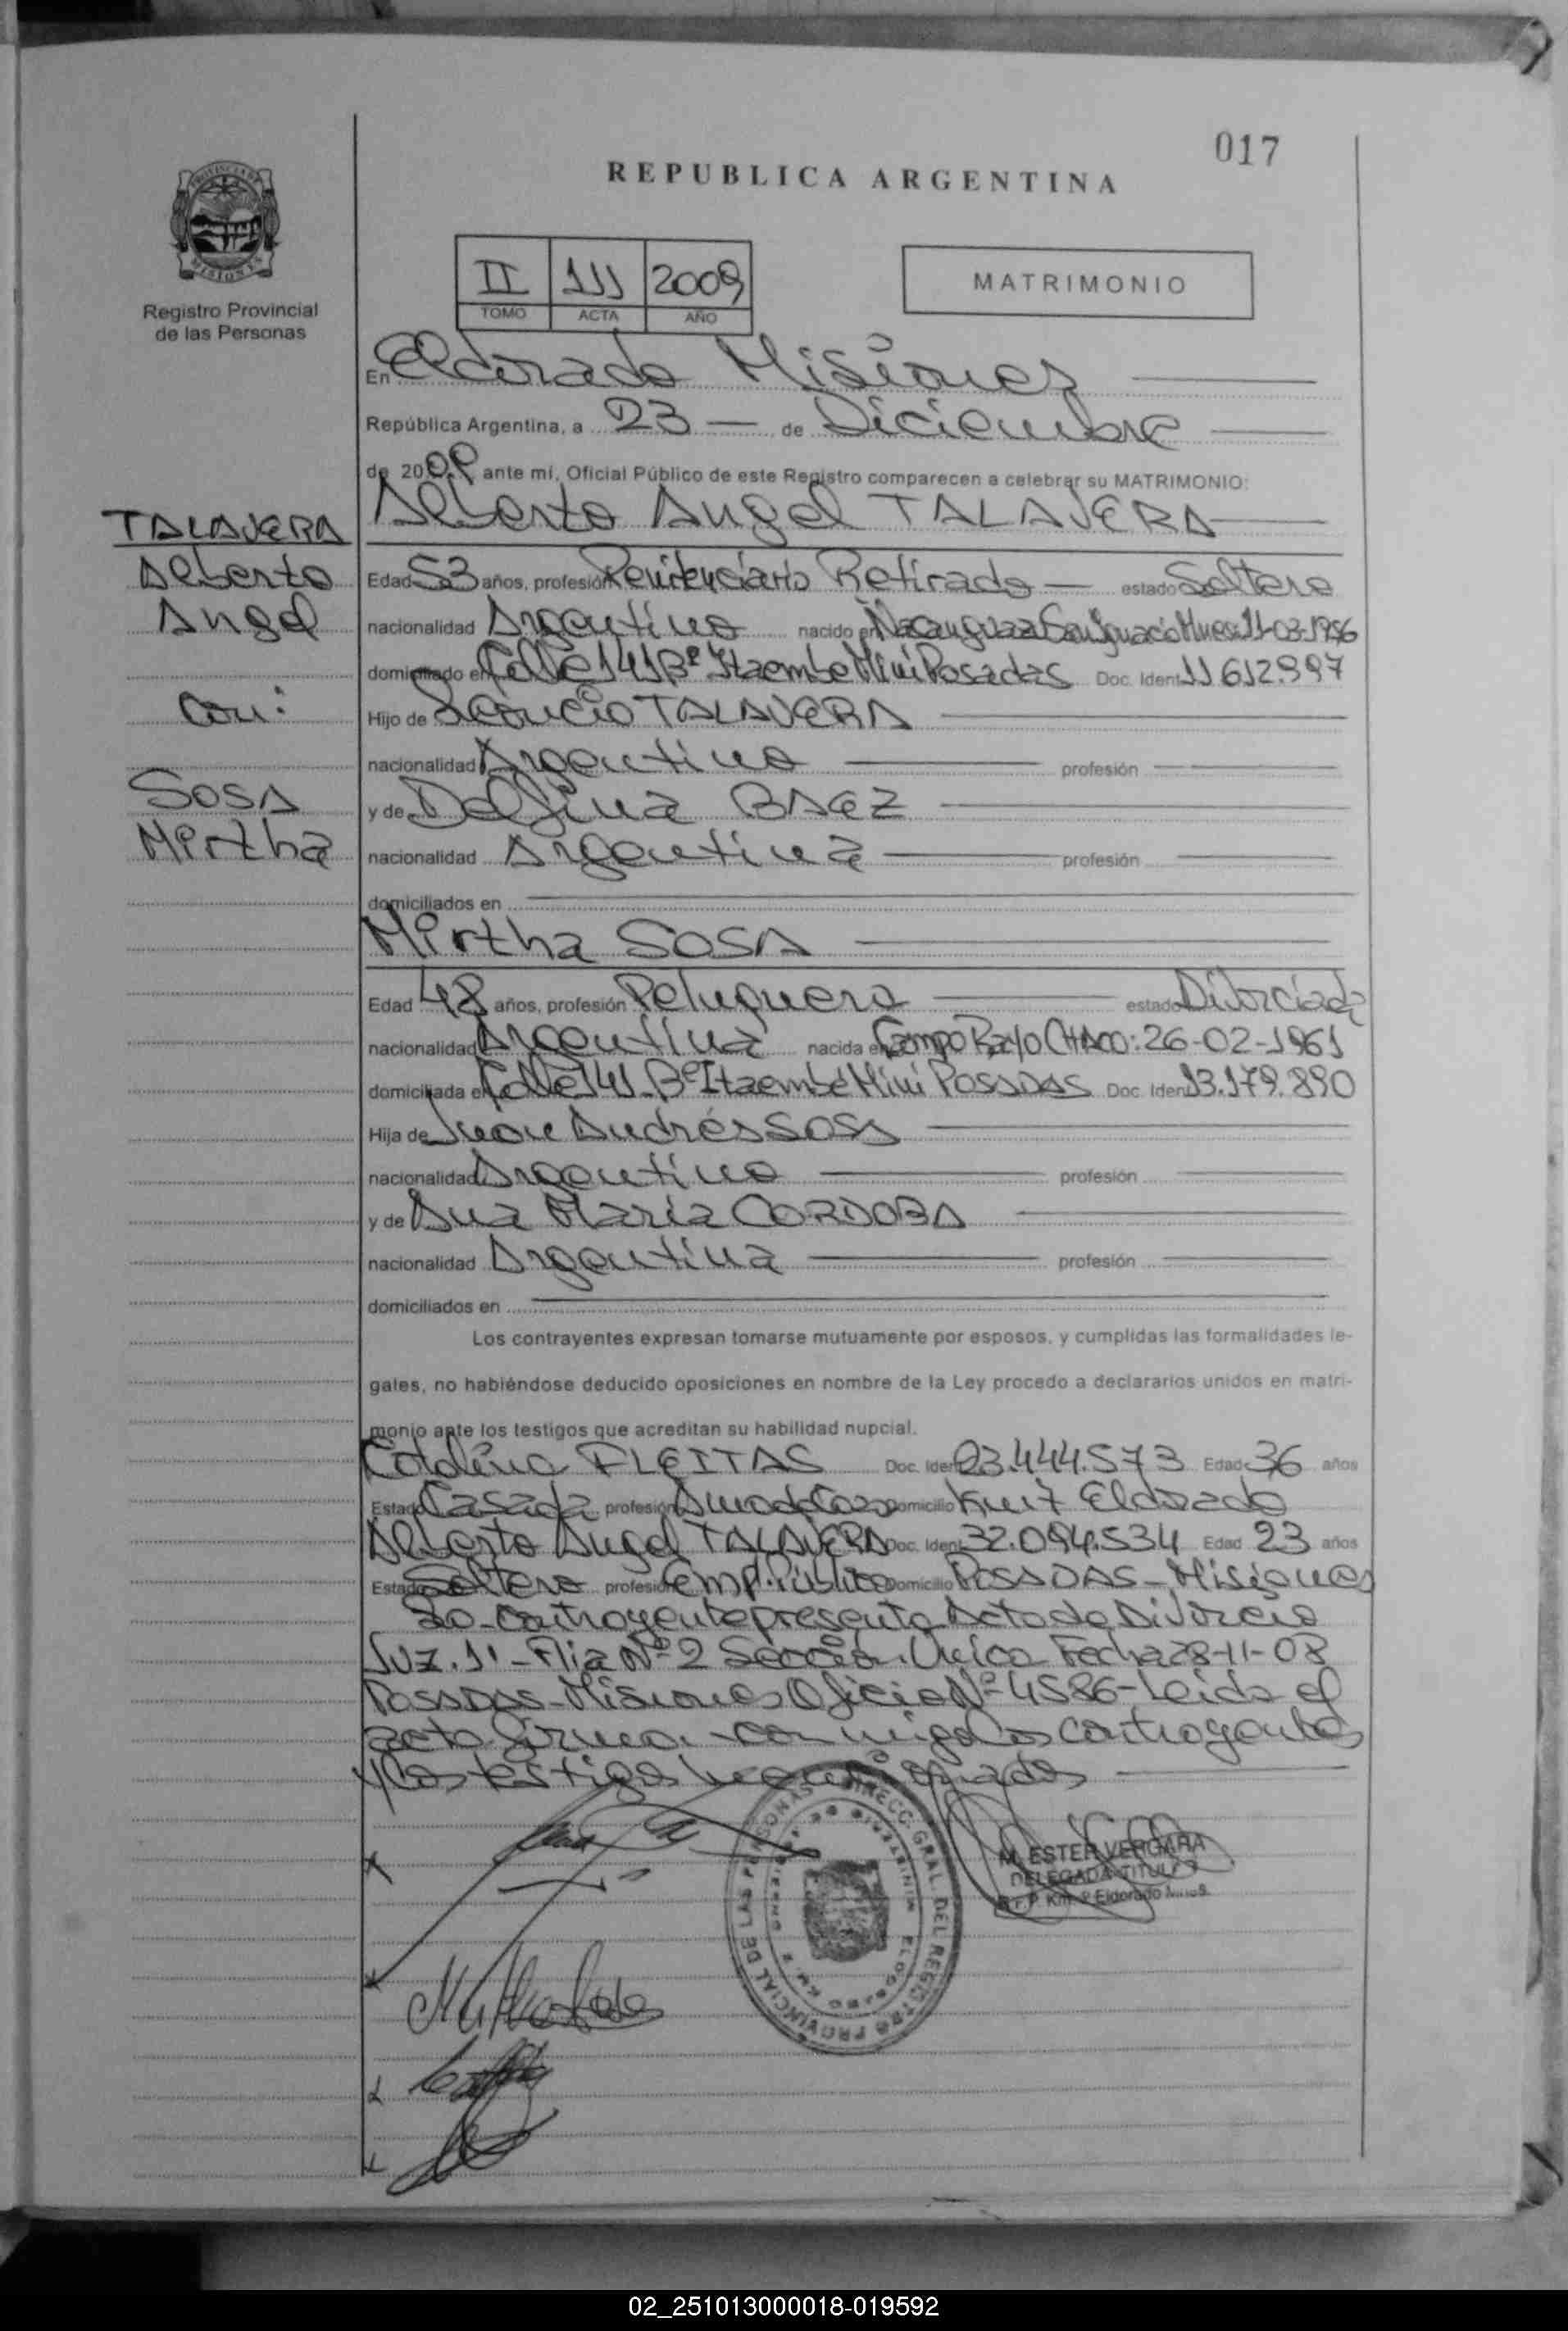 017
REPUBLICA ARGENTINA
PROVINCIA DE
MISIONES
Registro Provincial
de las Personas
II 111 2009
TOMO ACTA AÑO
MATRIMONIO
En Eldorado Misiones
República Argentina, a 23 — de Diciembre
de 2009 ante mí, Oficial Público de este Registro comparecen a celebrar su MATRIMONIO:
TALAVERA
Alberto
Angel
Con:
SOSA
Mirtha
Alberto Angel TALAVERA
Edad 53 años, profesión Penitenciario Retirado — estado Soltero
nacionalidad Argentino nacido en San Ignacio Mnes: 11-03-1956
domiciliado en Calle 141 Bº Itaembé Mini Posadas Doc. Ident. 11.612.997
Hijo de TALAVERA
nacionalidad Argentino profesión
y de Delfina BAEZ
nacionalidad Argentina profesión
domiciliados en
Mirtha SOSA
Edad 48 años, profesión Peluquera estado Divorciada
nacionalidad Argentina nacida en Campo Rayo CHACO: 26-02-1961
domiciliada en Calle 141 Bº Itaembé Mini POSADAS Doc. Ident. 13.179.890
Hija de Juan Andrés SOSA
nacionalidad Argentino profesión
y de Ana María CORDOBA
nacionalidad Argentina profesión
domiciliados en
Los contrayentes expresan tomarse mutuamente por esposos, y cumplidas las formalidades le-
gales, no habiéndose deducido oposiciones en nombre de la Ley procedo a declararlos unidos en matri-
monio ante los testigos que acreditan su habilidad nupcial.
FLEITAS Doc. Ident. 23.444.573 Edad 36 años
Estado Casada profesión Ama de Casa domicilio Km 7 Eldorado
Alberto Angel TALAVERA Doc. Ident. 32.094.534 Edad 23 años
Estado Soltero profesión Emp. Público domicilio POSADAS - Misiones
contrayente presenta Acta de Divorcio
Juz. 1º - Flia Nº 2 Única Fecha 28-11-08
POSADAS - Misiones Oficio Nº 4586 - Leida el
acta firman conmigo los contrayentes
y los testigos
DIRECC. GRAL. DEL REGISTRO PROVINCIAL DE LAS PERSONAS
M. ESTER VERGARA
DELEGADA TITULAR
R.P.P. Km. 9 Eldorado Mnes.
02_251013000018-019592